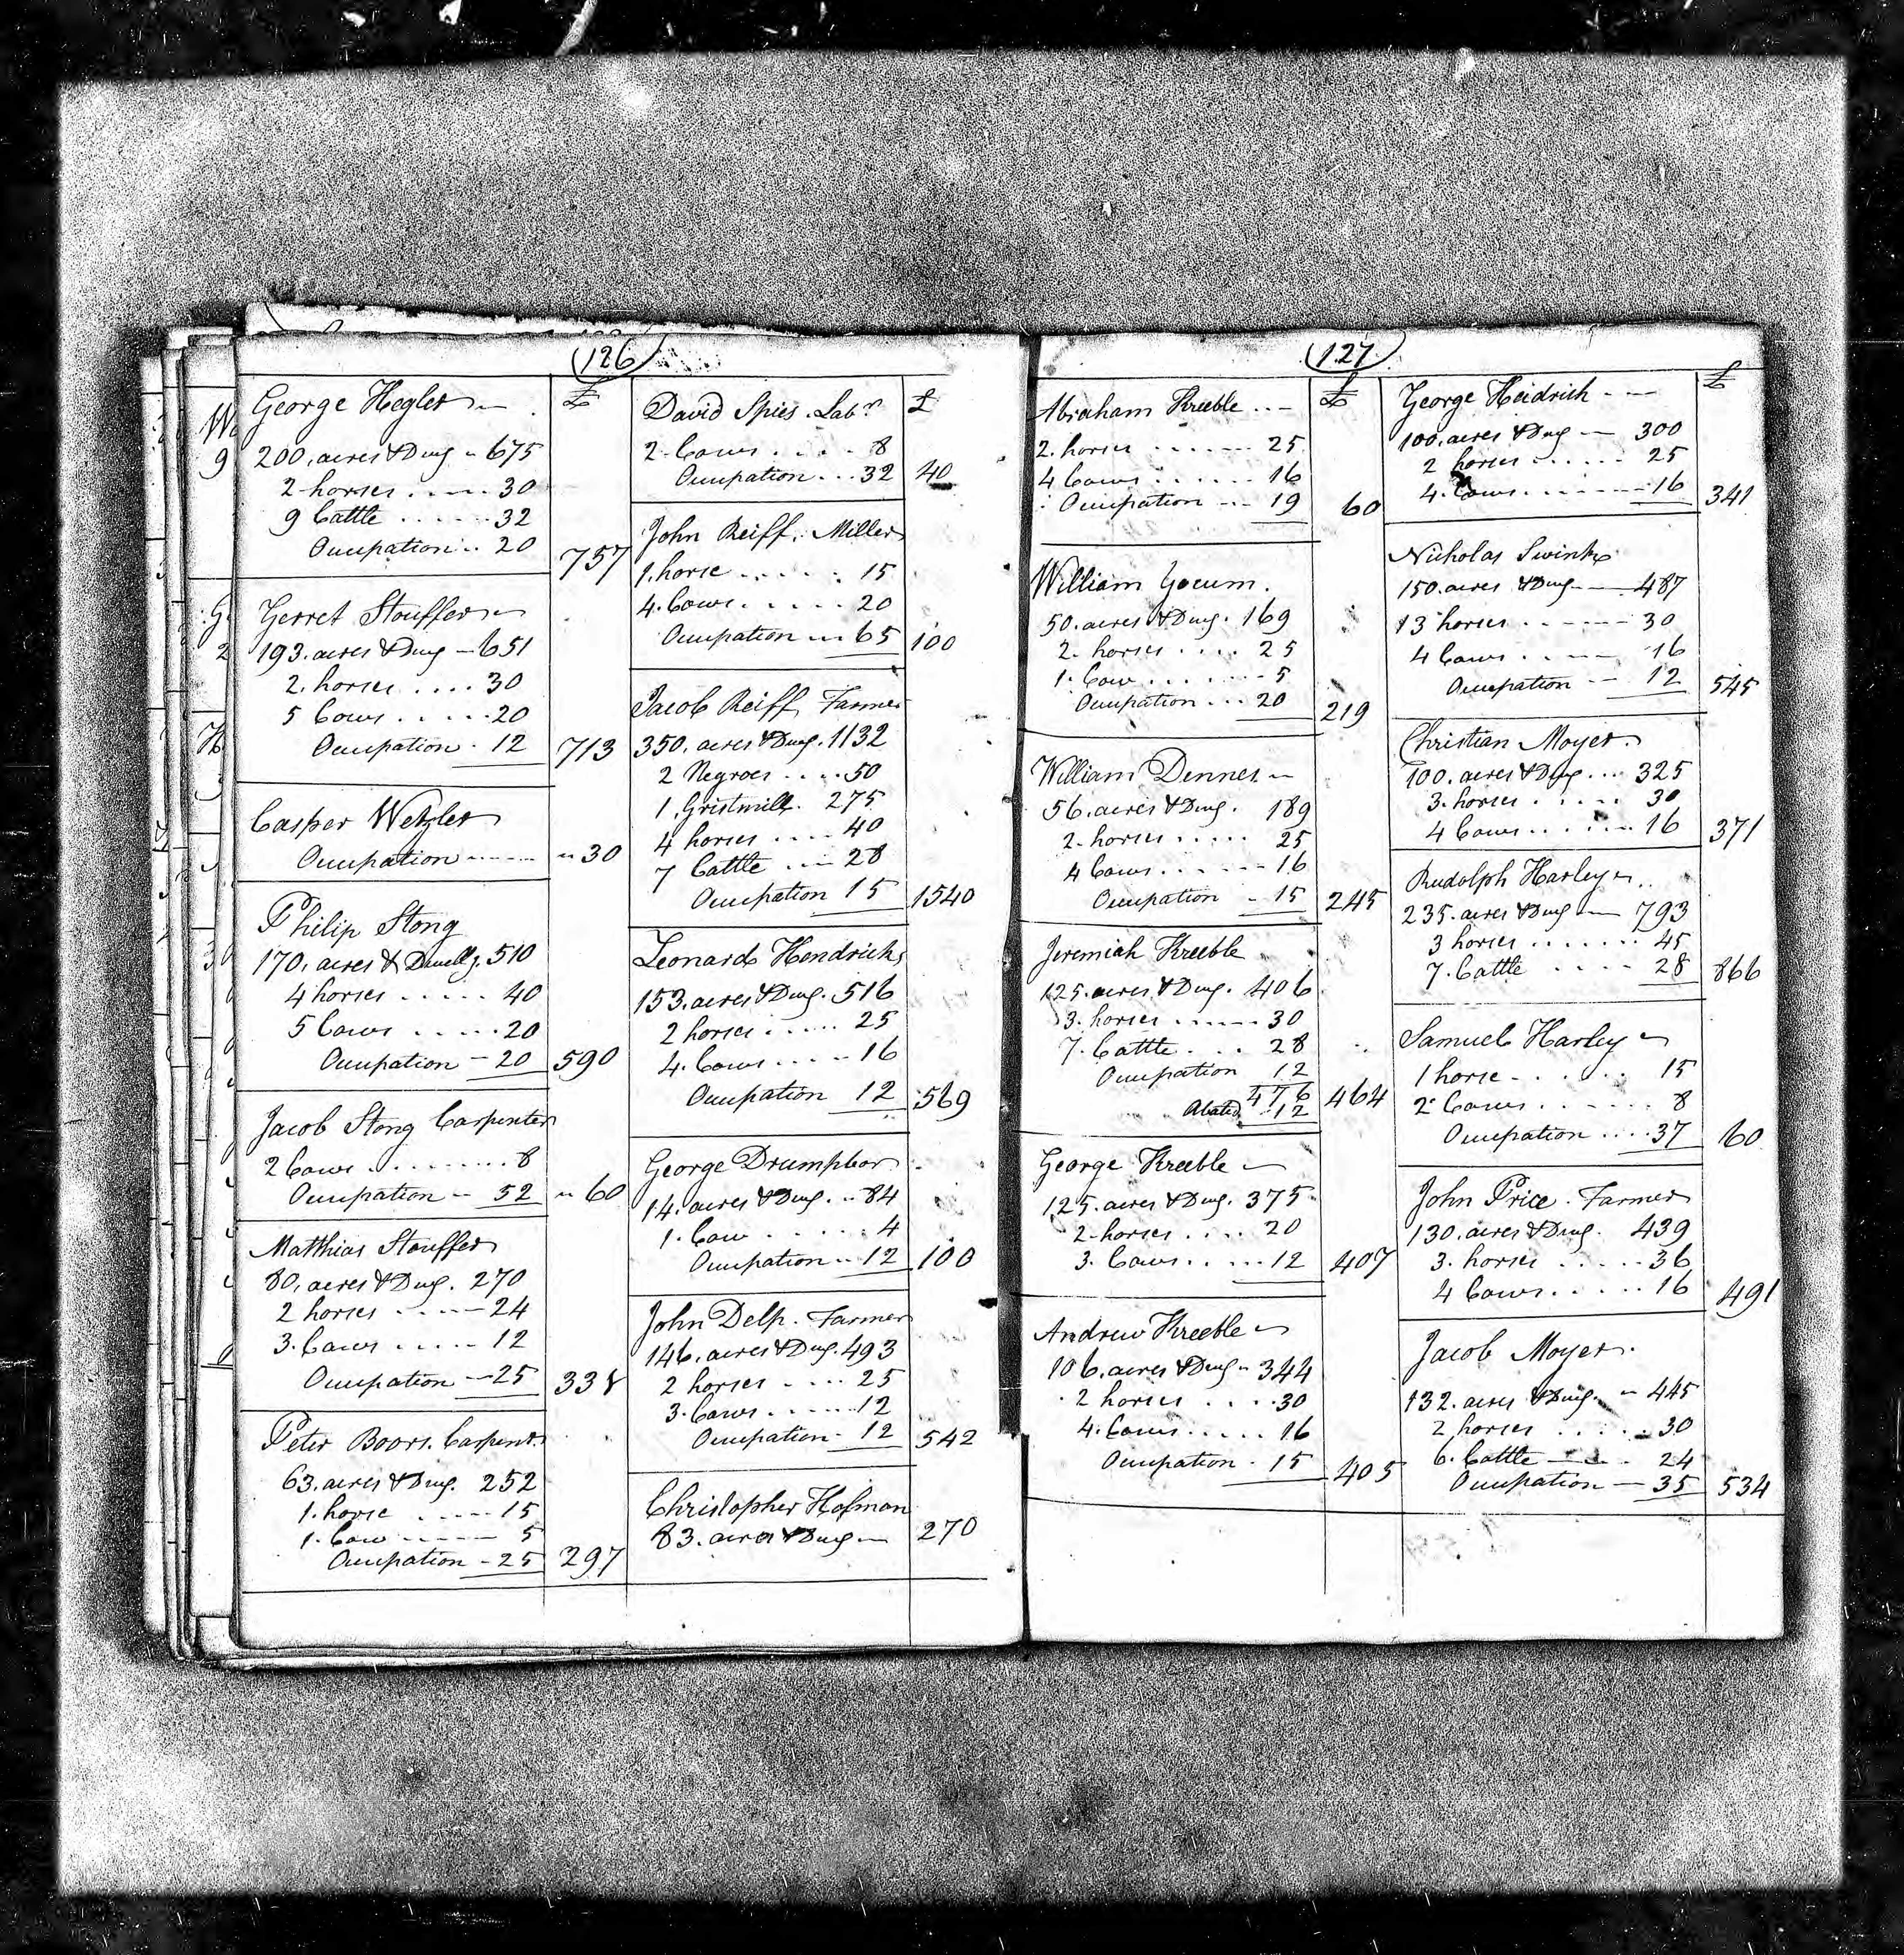 126
George Hegler
£
200. acres & Dwg 675
2 horses 30
9 Cattle 32
Occupation 20
757
Gerret Stouffer
193. acres & Dwg 651
2. horses 30
5 Cows 20
Occupation 12
713
Casper Wetzler
Occupation 30
Philip Stong
170. acres & Dwellg. 510
4 horses 40
5 Cows 20
Occupation 20
590
Jacob Stong Carpenter
2 Cows 8
Occupation 52
60
Matthias Stouffer
80. acres & Dwg. 270
2 horses 24
3. Cows 12
Occupation 25
338
Peter Boors. Carpent.
63. acres & Dwg. 252
1. horse 15
1. Cow 5
Occupation 25
297
David Spies. Labr.
£
2 Cows 8
Occupation 32
40
John Reiff. Miller
1. horse 15
4. Cows 20
Occupation 65
100
Jacob Reiff Farmer
350. acres & Dwg. 1132
2 Negroes 50
1. Gristmill. 275
4 horses 40
7 Cattle 28
Occupation 15
1540
Leonard Hendricks
153. acres & Dwg. 516
2 horses 25
4. Cows 16
Occupation 12
569
George Drumphor
14. acres & Dwg. 84
1. Cow 4
Occupation 12
100
John Delp. Farmer
146. acres & Dwg. 493
2 horses 25
3. Cows 12
Occupation 12
542
Christopher Hofman
83. acres & Dwg 270
127
Abraham Kreeble
£
2. horses 25
4 Cows 16
Occupation 19
60
William Yocum.
50. acres & Dwg. 169
2. horses 25
1. Cow 5
Occupation 20
219
William Denner
56. acres & Dwg. 189
2. horses 25
4 Cows 16
Occupation 15
245
Jeremiah Kreeble
125. acres & Dwg. 406
3. horses 30
7. Cattle 28
Occupation 12
476
Abated 12
464
George Kreeble
125. acres & Dwg. 375
2 horses 20
3. Cows 12
407
Andrew Kreeble
106. acres & Dwg 344
2 horses 30
4. Cows 16
Occupation 15
405
George Heidrich
£
100. acres & Dwg 300
2 horses 25
4. Cows 16
341
Nicholas Swink
150. acres & Dwg 487
13 horses 30
4 Cows 16
Occupation 12
545
Christian Moyer.
100. acres & Dwg 325
3. horses 30
4 Cows 16
371
Rudolph Harley
235. acres & Dwg 793
3 horses 45
7. Cattle 28
866
Samuel Harley
1 horse 15
2 Cows 8
Occupation 37
60
John Price. Farmer
130. acres & Dwg. 439
3. horses 36
4 Cows 16
491
Jacob Moyer.
132. acres & Dwg. 445
2 horses 30
6. Cattle 24
Occupation 35
534